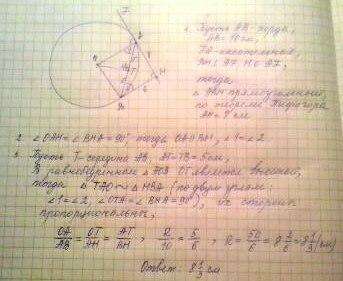 1. Пусть AB - хорда,
AB = 10 см,
TA - касательная,
BH ⊥ AT, H ∈ AT,
тогда
△ ABH прямоугольный,
по теореме Пифагора
AH = 8 см
2. ∠OAH = ∠BHA = 90°, тогда OA ∥ BH, ∠1 = ∠2.
3. Пусть T - середина AB, AT = TB = 5 см,
В равнобедренном △ AOB OT является высотой,
тогда △ TAO ∼ △ HBA (по двум углам:
∠1 = ∠2, ∠OTA = ∠BHA = 90°), их стороны
пропорциональны,
OA/AB = OT/AH = AT/BH, R/10 = 5/6, R = 50/6 = 8 1/3 (см)
Ответ: 8 1/3 см